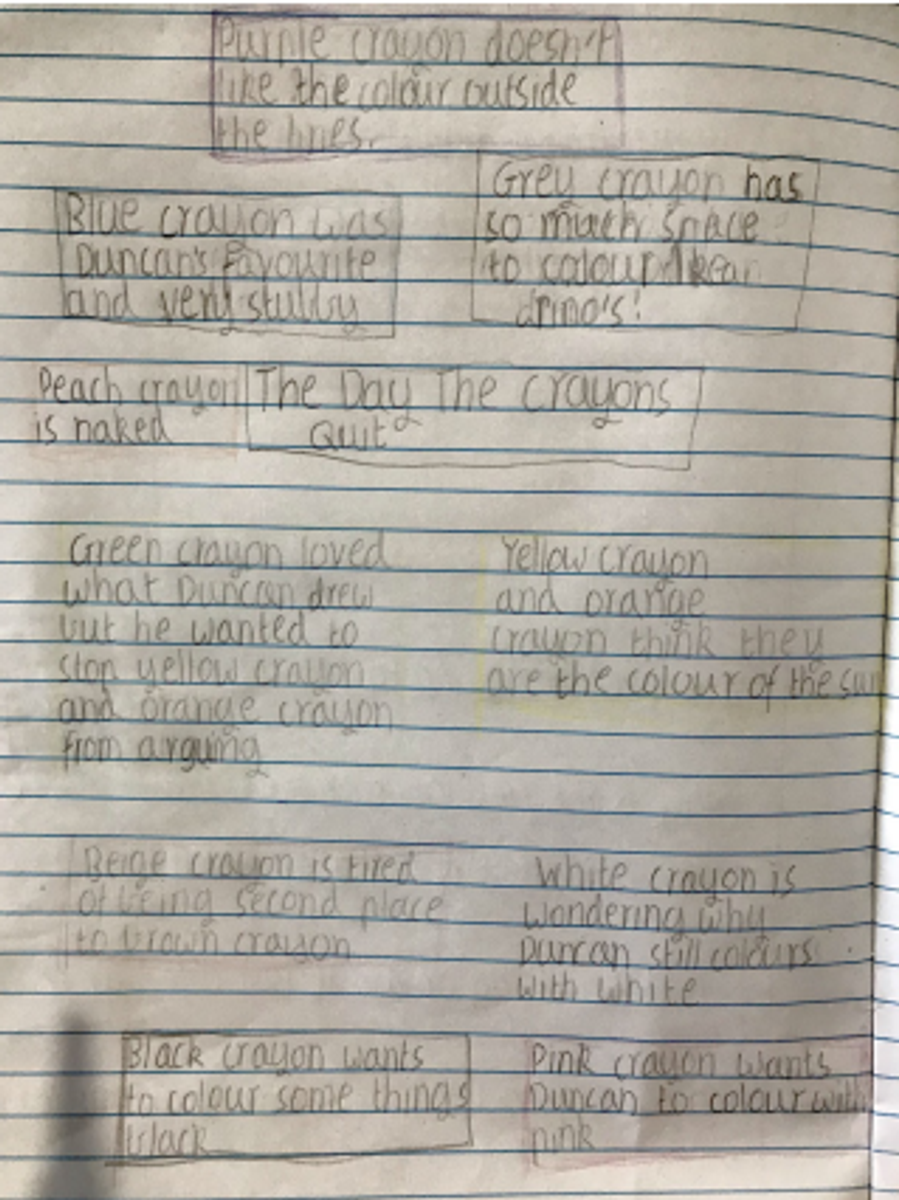 Purple crayon doesn't
like the colour outside
the lines.
Grey crayon has
so much space
to colour
Blue crayon was
Duncan's favourite
and very stubby
Peach crayon
is naked
The Day The Crayons
Quit
Green crayon loved
what Duncan drew
but he wanted to
stop yellow crayon
and orange crayon
from arguing
Yellow crayon
and orange
crayon think they
are the colour of the sun
Beige crayon is tired
of being second place
to brown crayon
White crayon is
wondering why
Duncan still colours
with white
Black crayon wants
to colour some things
black
Pink crayon wants
Duncan to colour with
pink